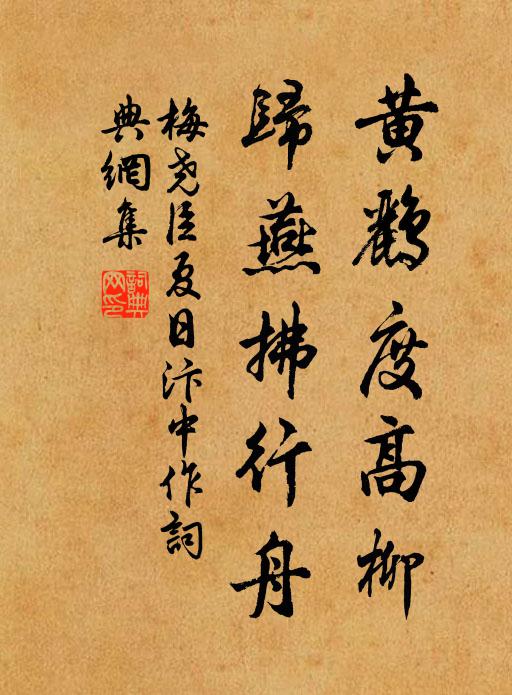 黄鸝度高柳
歸燕拂行舟
梅堯臣夏日汴中作詞
典網集
詞典
网印